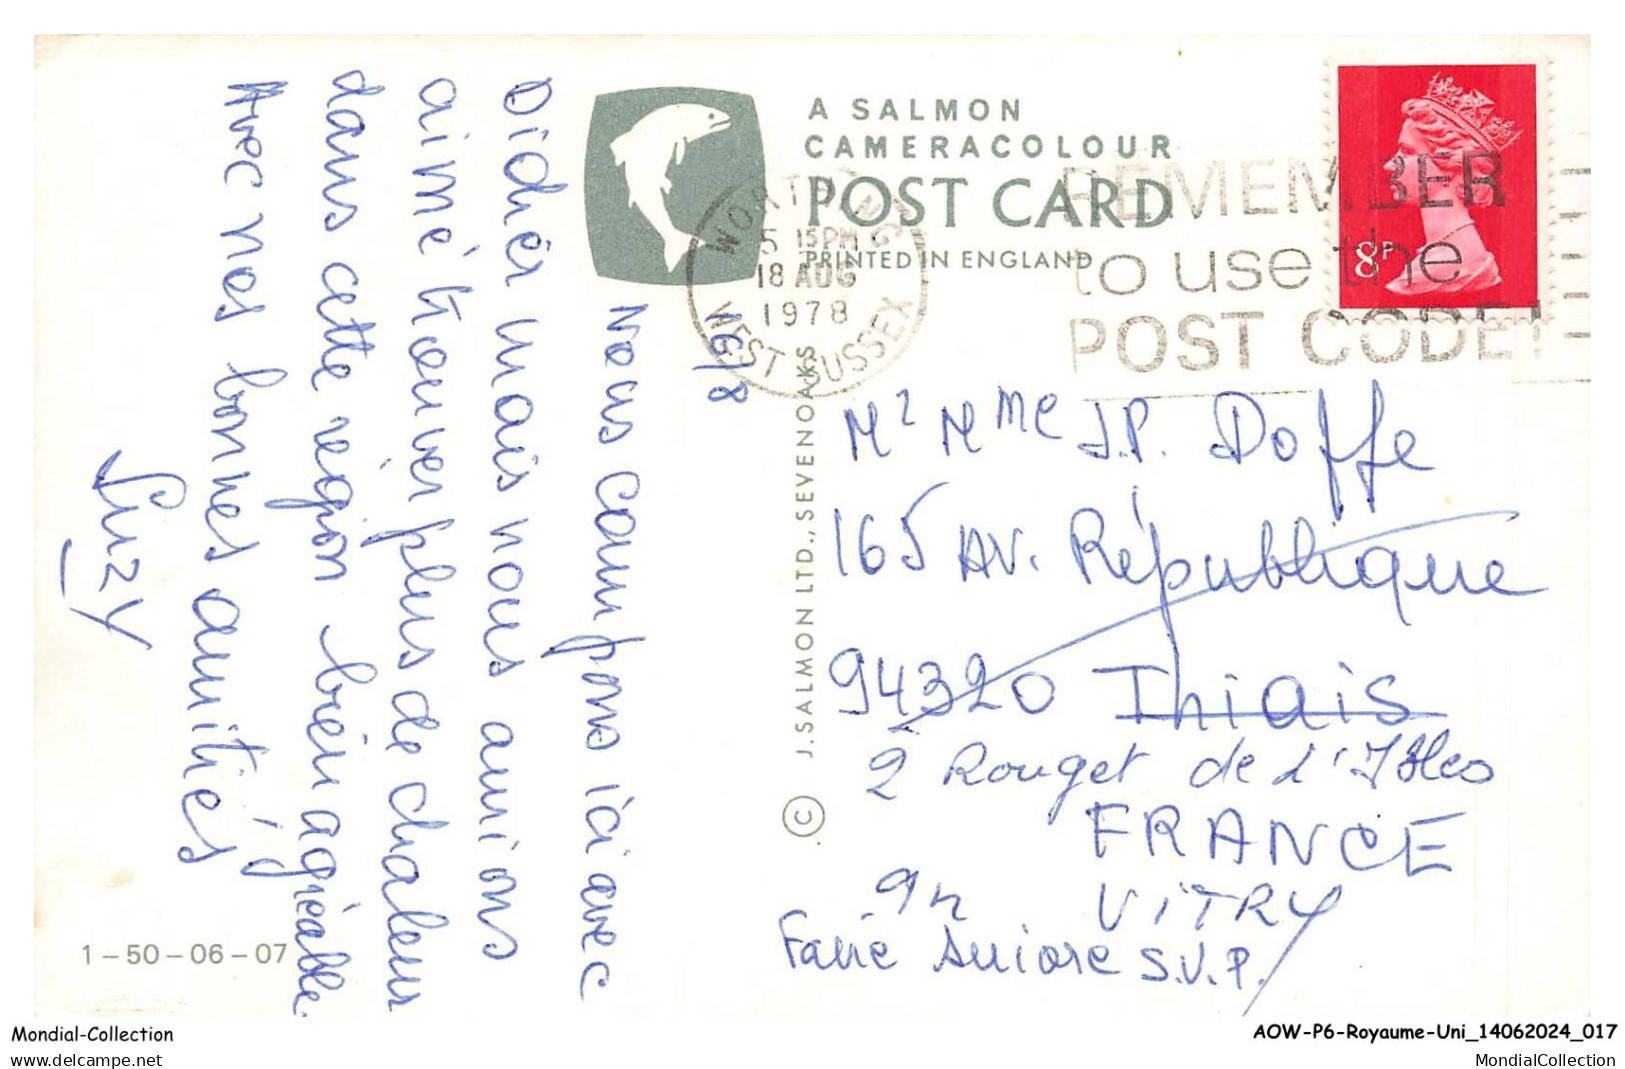 A SALMON
CAMERACOLOUR
POST CARD
PRINTED IN ENGLAND
WORTHING
5 15PM
18 AUG
1978
WEST SUSSEX
REMEMBER
to use the
POST CODE!
8P
16/8
Nous campons ici avec
Didier mais nous aurions
aimé trouver plus de chaleur
dans cette région bien agréable
Avec nos bonnes amitiés
Suzy
J. SALMON LTD., SEVENOAKS
©
Mr Mme J.P. Doffe
165 AV. République
94320 Thiais
2 Rouget de L'Isles
FRANCE
VITRY
Faire Suivre S.V.P.
1-50-06-07
Mondial-Collection
delcampe.net
AOW-P6-Royaume-Uni_14062024_017
MondialCollection